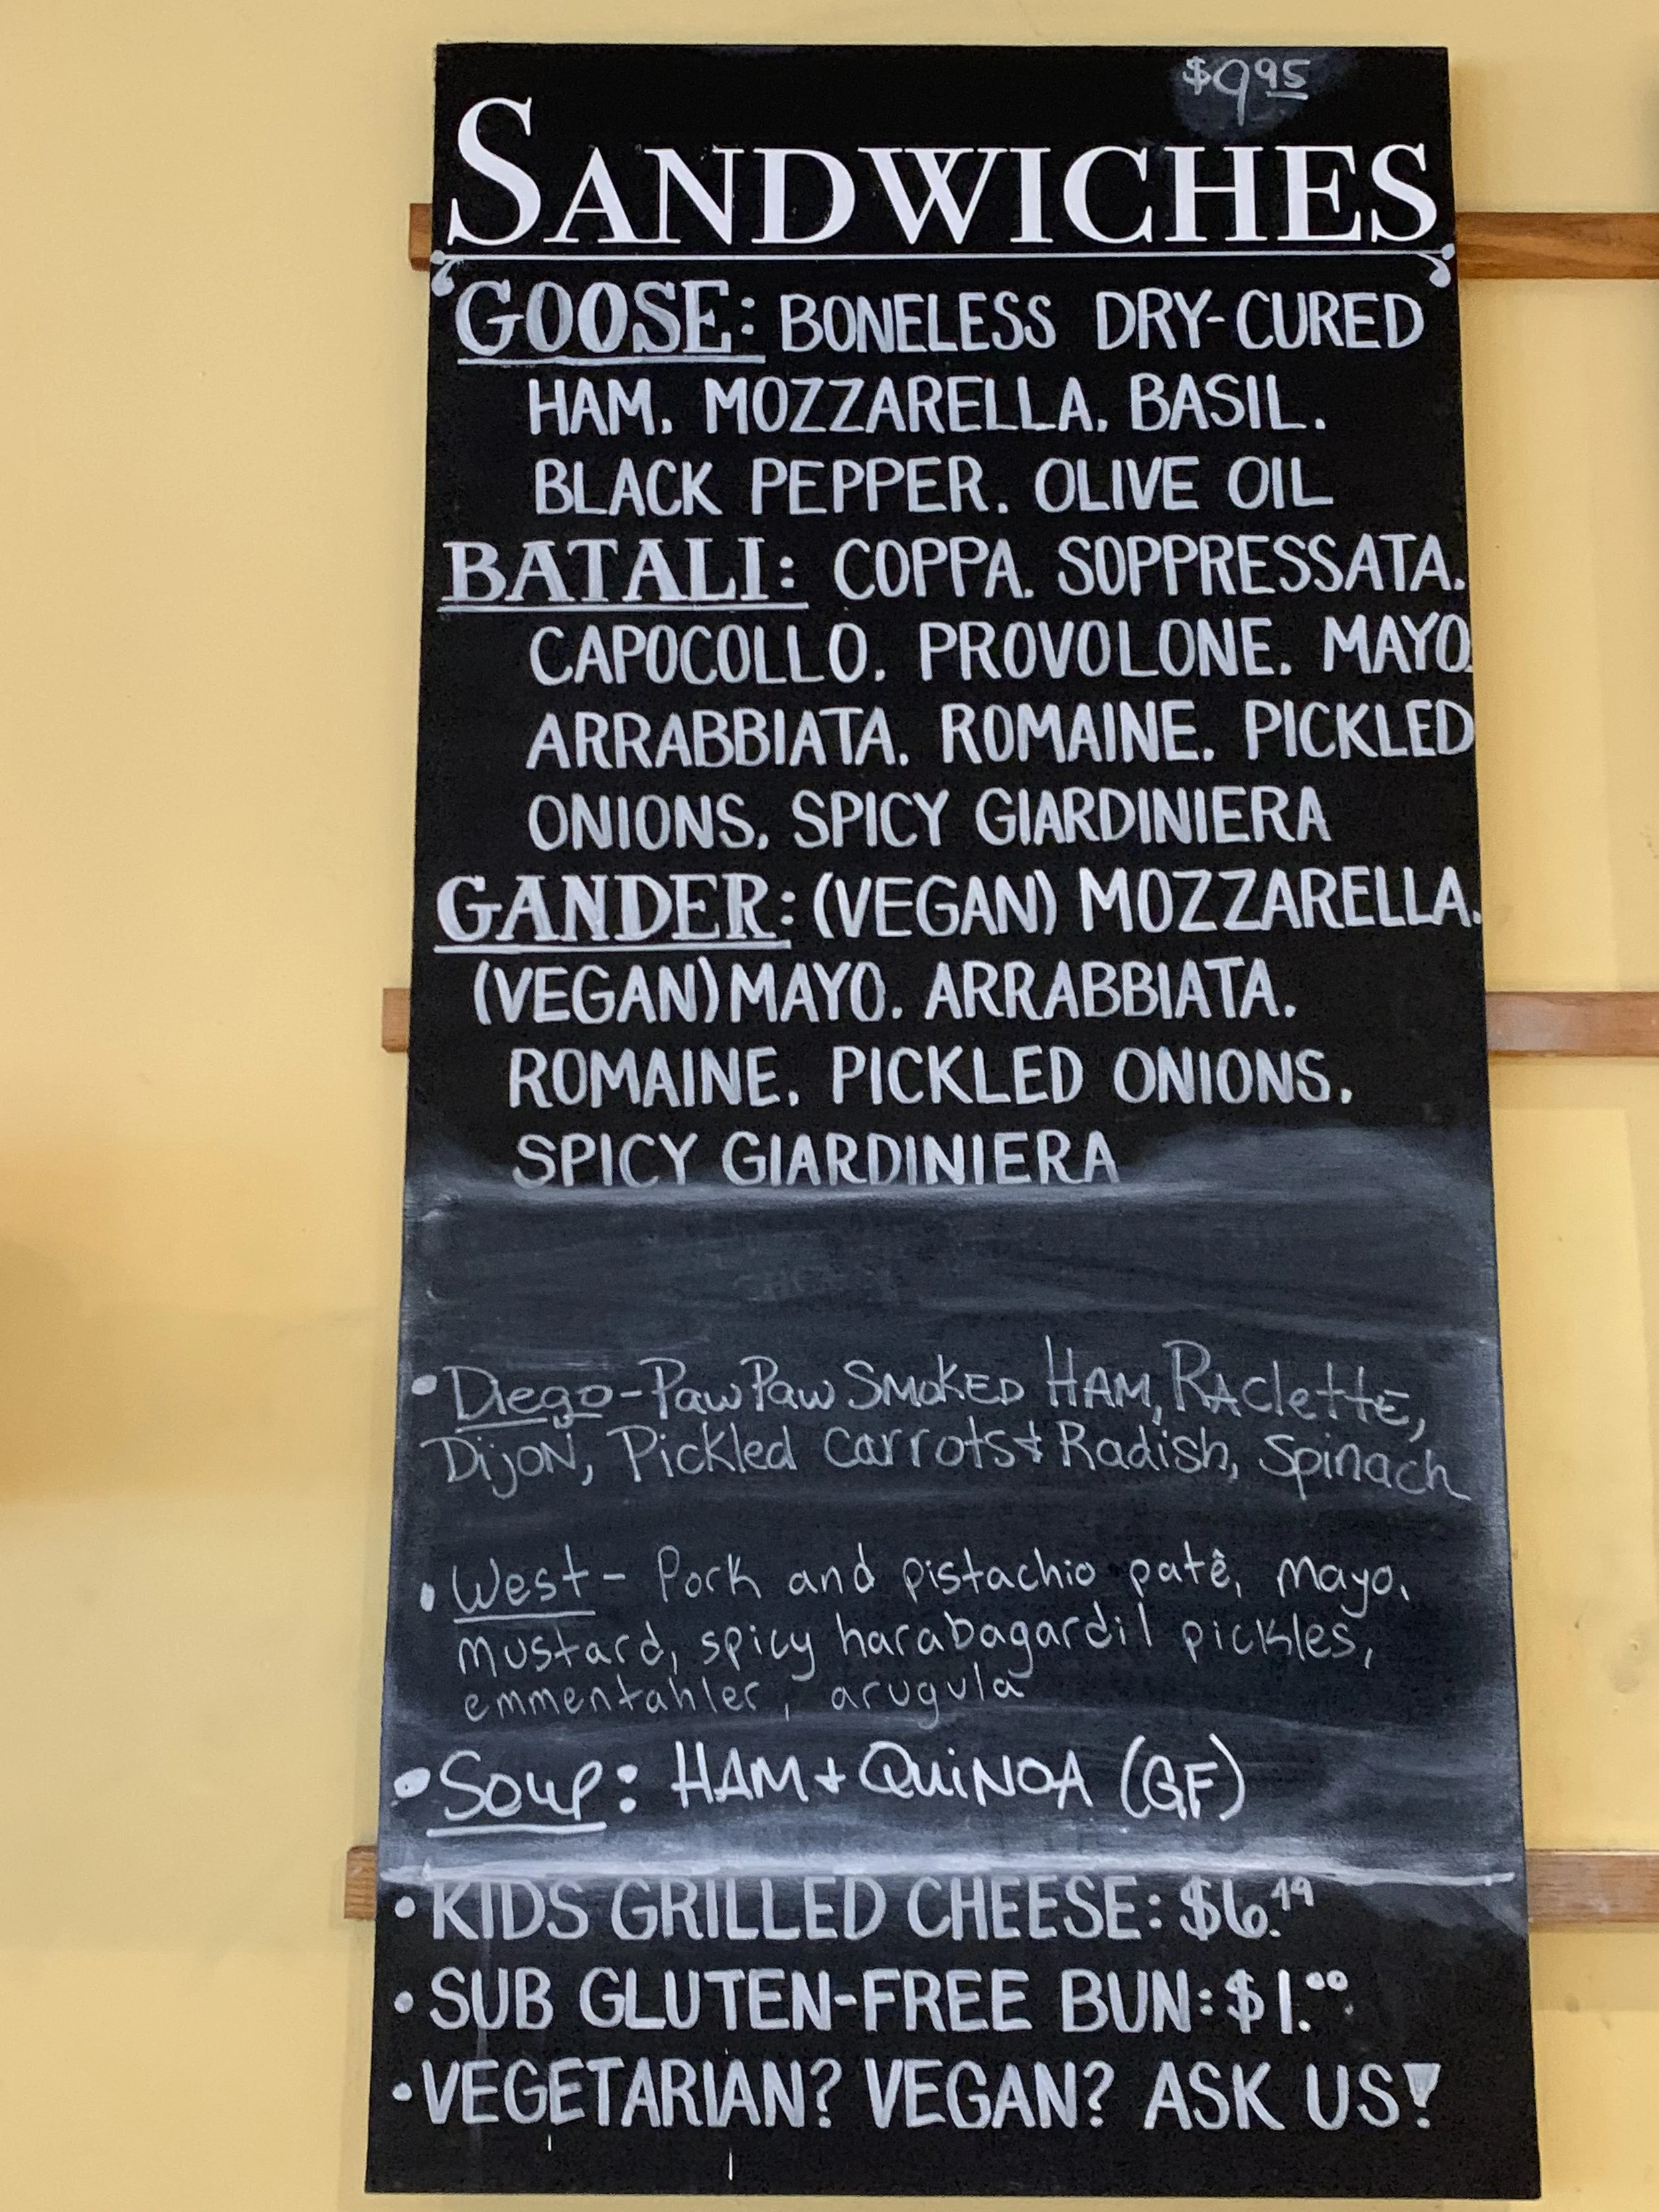 $9.95
SANDWICHES
GOOSE: BONELESS DRY-CURED
HAM. MOZZARELLA. BASIL.
BLACK PEPPER. OLIVE OIL
BATALI: COPPA. SOPPRESSATA.
CAPOCOLLO. PROVOLONE. MAYO.
ARRABBIATA. ROMAINE. PICKLED
ONIONS. SPICY GIARDINIERA
GANDER: (VEGAN) MOZZARELLA.
(VEGAN) MAYO. ARRABBIATA.
ROMAINE. PICKLED ONIONS.
SPICY GIARDINIERA
• Diego - Paw Paw SMOKED HAM, RAclettE,
DijoN, Pickled carrots + Radish, Spinach
• West - Pork and pistachio patê, mayo.
mustard, spicy harabagardil pickles,
emmentahler, arugula
• Soup: HAM + QuiNOA (GF)
• KIDS GRILLED CHEESE: $6.49
• SUB GLUTEN-FREE BUN: $1.00
• VEGETARIAN? VEGAN? ASK US!